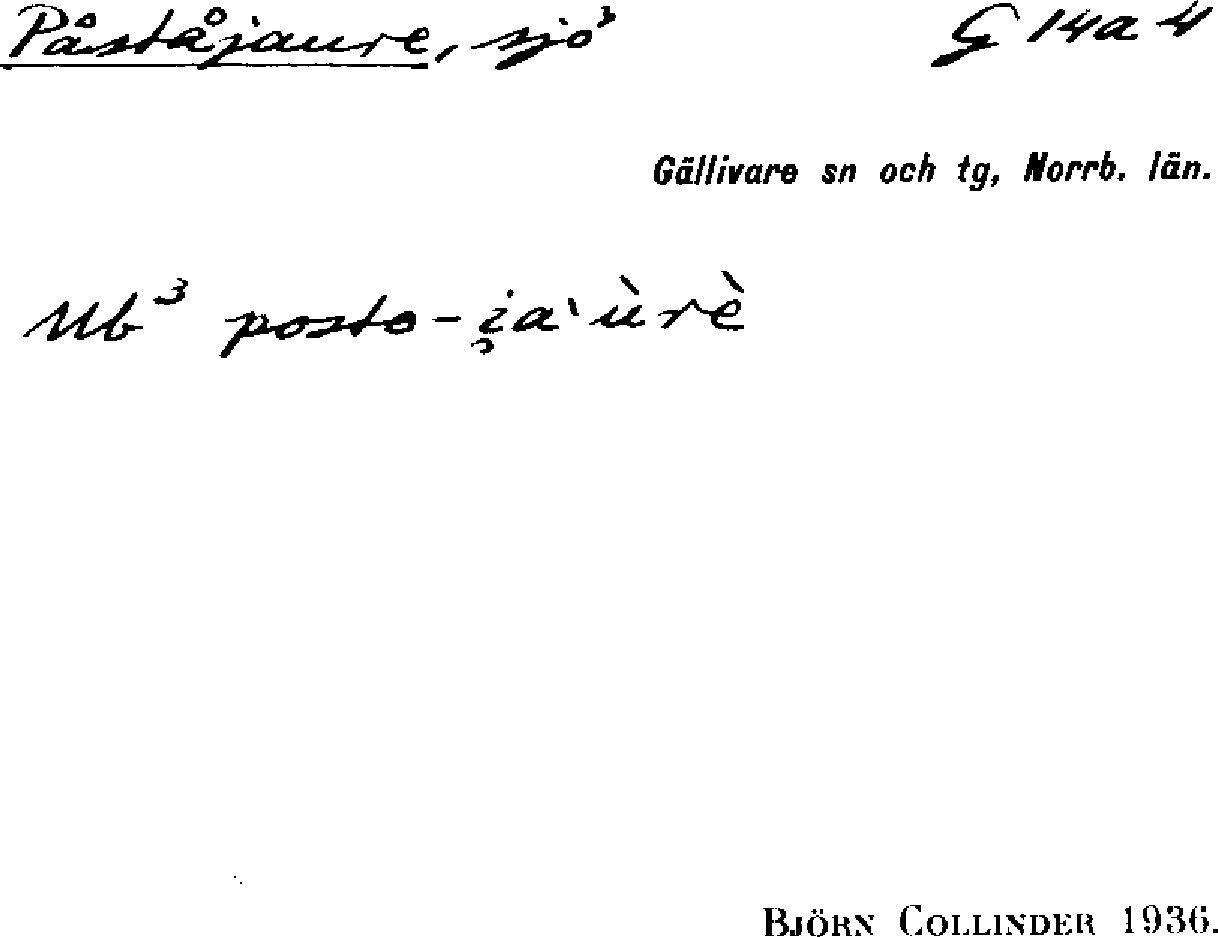 Påståjaure, sjö G 14a 4
Gällivare sn och tg, Norrb. län.
Ub³ posto-i̯a`ùrè
BJÖRN COLLINDER 1936.